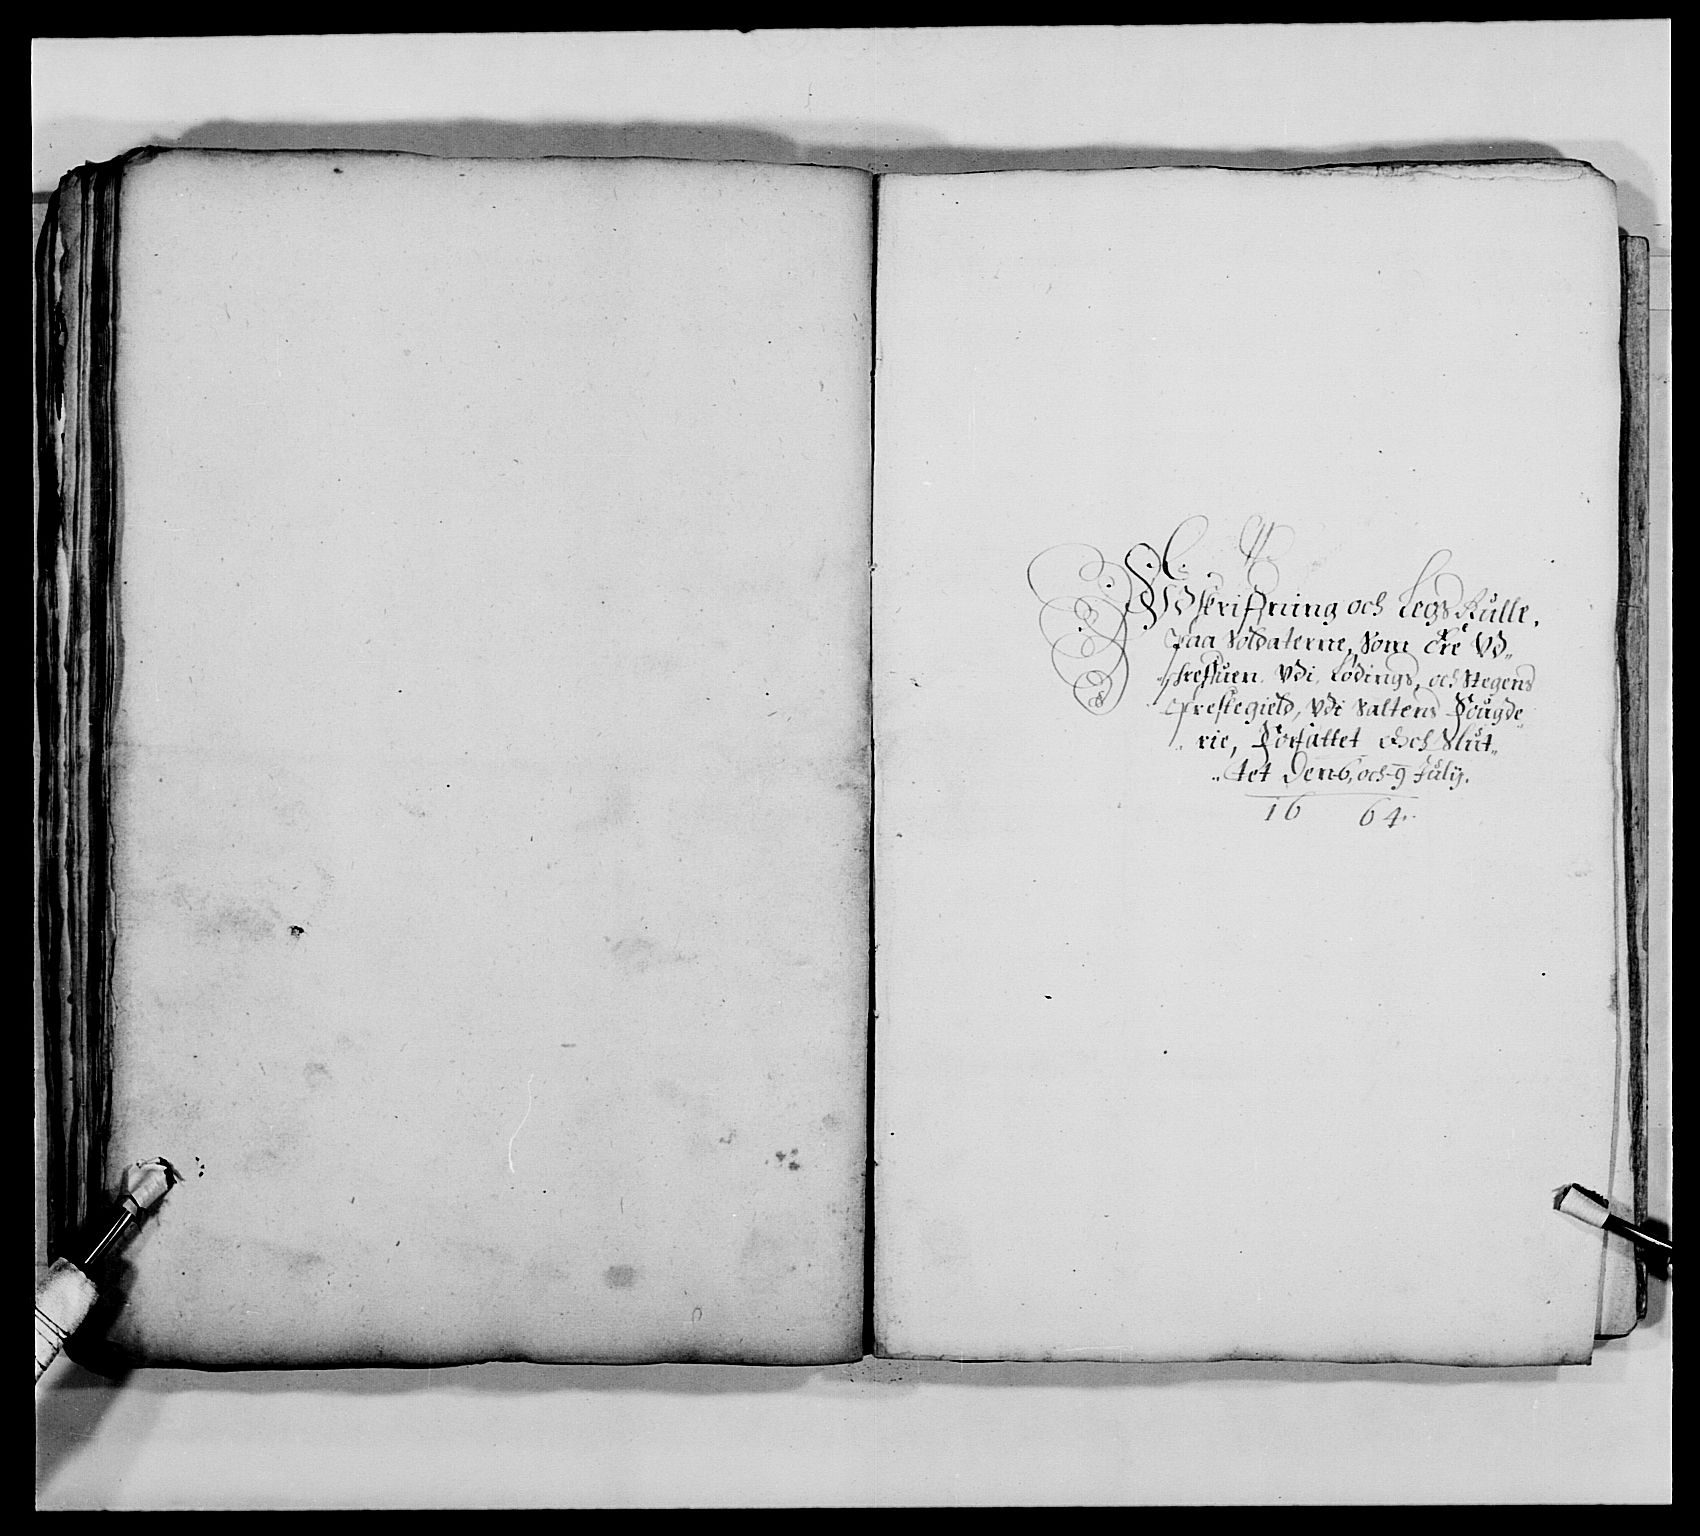 Udskrifning och Legs Rulle,
Paa Soldaterne, Som ere Ud„
„skrefuen Udi Lødings, och Stegens
Prestegield, Udi Saltens Fougde„
„rie, Forfattet Och Slut„
„tet Den 6, och 9 Julij.
16 64.